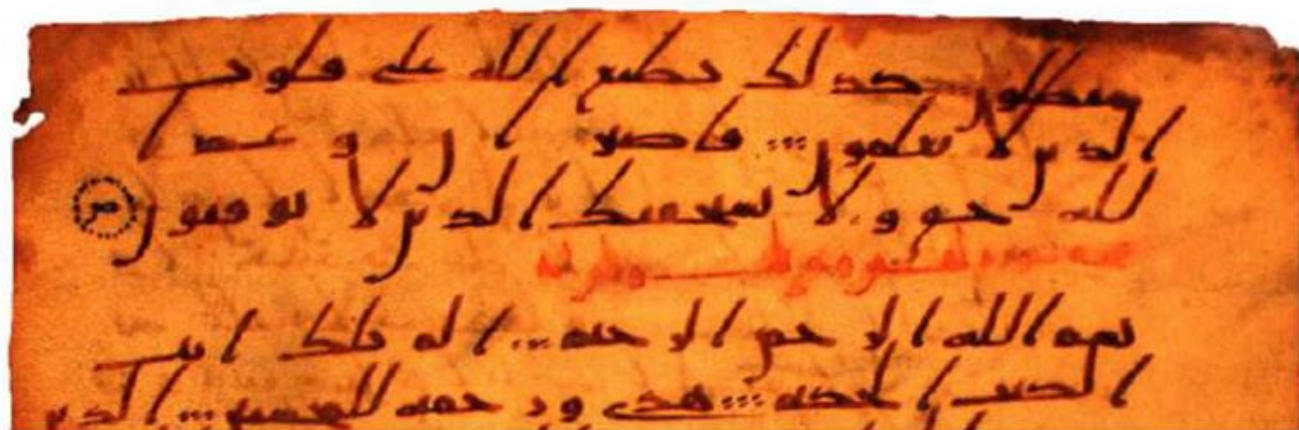 مبطلون كذلك يطبع الله على قلوب
الذين لا يعلمون فاصبر ان وعد ا
لله حق ولا يستخفنك الذين لا يوقنون
بسم الله الرحمن الرحيم الم تلك ايت
الكتب الحكيم هدى ورحمه للمحسنين الذين